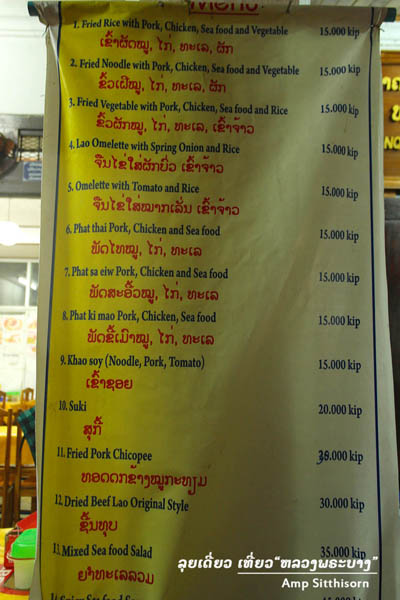 Menu
1. Fried Rice with Pork, Chicken, Sea food and Vegetable 15.000 kip
ເຂົ້າຜັດໝູ, ໄກ່, ທະເລ, ຜັກ
2. Fried Noodle with Pork, Chicken, Sea food and Vegetable 15.000 kip
ຂົ້ວເຝີໝູ, ໄກ່, ທະເລ, ຜັກ
3. Fried Vegetable with Pork, Chicken, Sea food and Rice 15.000 kip
ຂົ້ວຜັກໝູ, ໄກ່, ທະເລ, ເຂົ້າຈ້າວ
4. Lao Omelette with Spring Onion and Rice 15.000 kip
ຈືນໄຂ່ໃສ່ຜັກບົ່ວ ເຂົ້າຈ້າວ
5. Omelette with Tomato and Rice 15.000 kip
ຈືນໄຂ່ໃສ່ໝາກເລັ່ນ ເຂົ້າຈ້າວ
6. Phat thai Pork, Chicken and Sea food 15.000 kip
ພັດໄທໝູ, ໄກ່, ທະເລ
7. Phat sa eiw Pork, Chicken and Sea food 15.000 kip
ພັດສະອິ້ວໝູ, ໄກ່, ທະເລ
8. Phat ki mao Pork, Chicken, Sea food 15.000 kip
ພັດຂີ້ເມົາໝູ, ໄກ່, ທະເລ
9. Khao soy (Noodle, Pork, Tomato) 15.000 kip
ເຂົ້າຊອຍ
10. Suki 20.000 kip
ສຸກີ້
11. Fried Pork Chicopee .000 kip
ທອດດູກຂ້າງໝູກະທຽມ
12. Dried Beef Lao Original Style 30.000 kip
ຊີ້ນທຸບ
13. Mixed Sea food Salad 35.000 kip
ຍຳທະເລລວມ
ลุยเดี่ยว เที่ยว"หลวงพระบาง"
Amp Sitthisorn